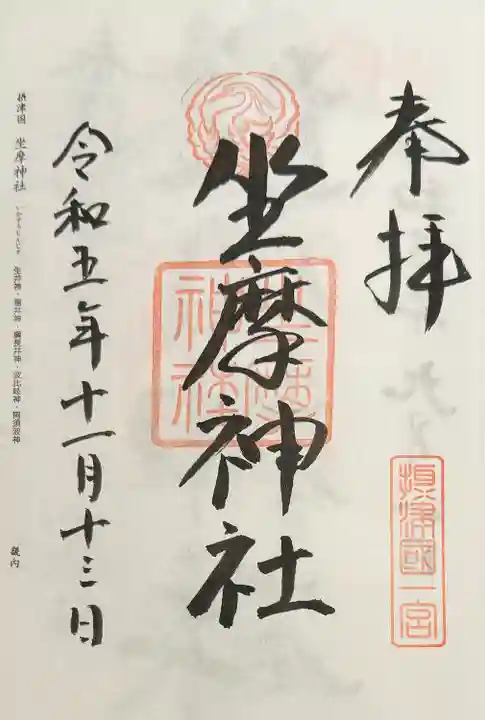 奉拝
摂津國一宮
坐摩神社
坐摩神社
令和五年十一月十三日
摂津国 坐摩神社 いかすりじんじゃ 生井神・福井神・綱長井神・波比祇神・阿須波神